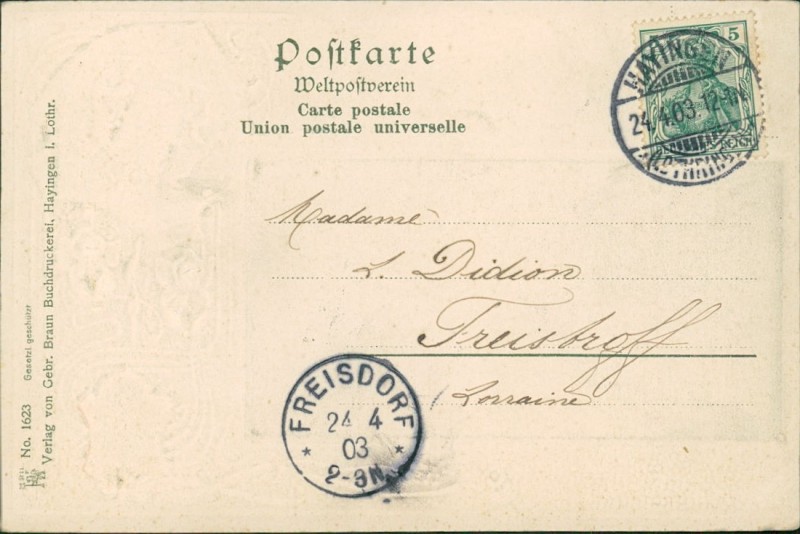 Postkarte
Weltpostverein
Carte postale
Union postale universelle
5
HAYINGEN
24.4.03. 12-1N
(LOTHRING.)
Madame
L. Didion
Freistroff
(Lorraine
FREISDORF
24 4
03
* *
2-3N
No. 1623 Gesetzl. geschützt
Verlag von Gebr. Braun Buchdruckerei, Hayingen i. Lothr.